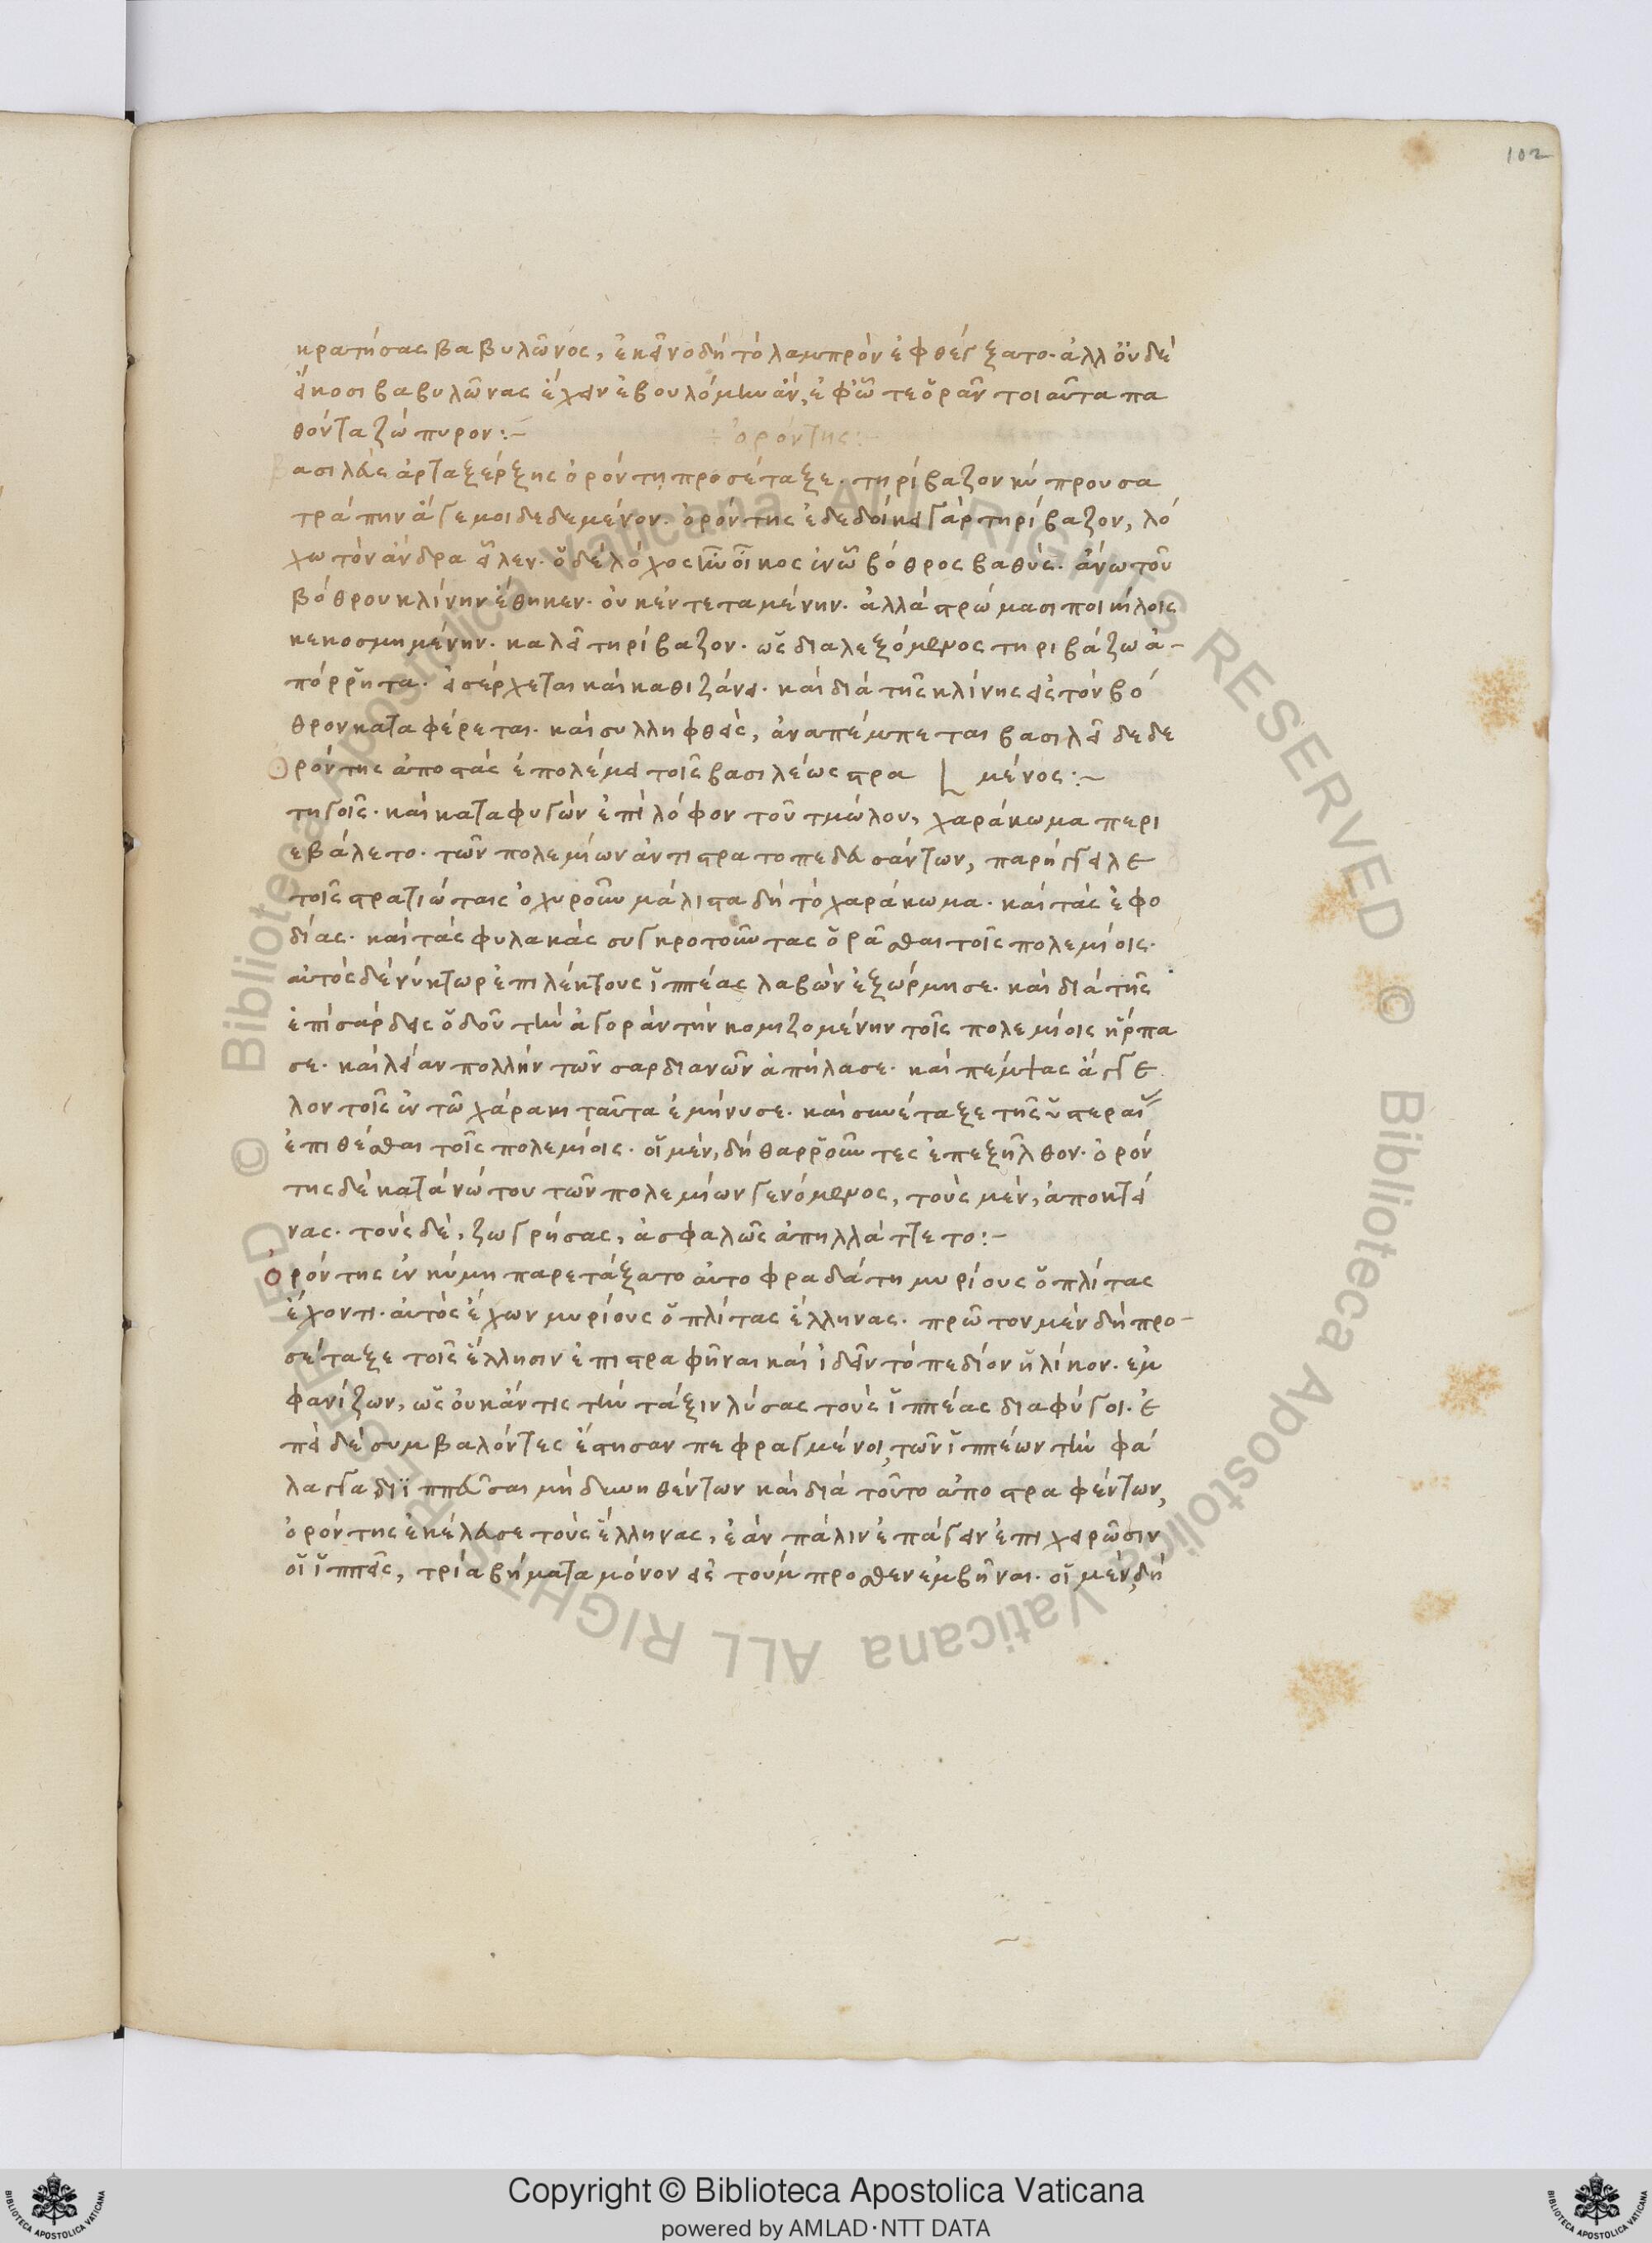 102
κρατήσας βαβυλῶνος, ἐκεῖνο δὴ τὸ λαμπρὸν ἐφθέγξατο. ἀλλ οὐδὲ
εἴκοσι βαβυλῶνας ἑλεῖν ἐβουλόμην ἄν, ἐφ ὧ τε ὁρᾶν τοιαῦτα πα
θόντα ζώπυρον:–
÷ ὀρόντης:–
Βασιλεὺς ἀρταξέρξης ὀρόντη προσέταξε. τηρίβαζον κύπρου σα
τράπην ἄγε μοι δεδεμένον. ὀρόντης ἐδεδοίκει γὰρ τηρίβαζον, λό
χω τὸν ἄνδρα εἷλεν. ὁ δὲ λόχος ἦν οἶκος ἐν ὧ βόθρος βαθύς. ἄνω τοῦ
βόθρου κλίνην ἔθηκεν. οὐκ ἐντεταμένην. ἀλλὰ στρώμασι ποικίλοις
κεκοσμημένην. καλεῖ τηρίβαζον. ὡς διαλεξόμενος τηριβάζω ἀ–
πόρρητα. εἰσέρχεται καὶ καθιζάνει. καὶ διὰ τῆς κλίνης εἰς τὸν βό
θρον καταφέρεται. καὶ συλληφθεὶς, ἀναπέμπεται βασιλεῖ δεδε
μένος:–
Ὀρόντης ἀποστὰς ἐπολέμει τοῖς βασιλέως στρα
τηγοῖς. καὶ καταφυγὼν ἐπὶ λόφον τοῦ τμώλου, χαράκωμα περι
εβάλετο. τῶν πολεμίων ἀντιστρατοπεδευσάντων, παρήγγειλε
τοῖς στρατιώταις ὀχυροῦν μάλιστα δὴ τὸ χαράκωμα. καὶ τὰς ἐφο
δίας. καὶ τὰς φυλακὰς συγκροτοῦντας ὁρᾶσθαι τοῖς πολεμίοις.
αὐτὸς δὲ νύκτωρ ἐπιλέκτους ἱππέας λαβὼν ἐξώρμησε. καὶ διὰ τῆς
ἐπὶ σάρδεις ὁδοῦ τὴν ἀγορὰν τὴν κομιζομένην τοῖς πολεμίοις ἥρπα
σε. καὶ λείαν πολλὴν τῶν σαρδιανῶν ἀπήλασε. καὶ πέμψας ἄγγε
λον τοῖς ἐν τῶ χάρακι ταῦτα ἐμήνυσε. καὶ συνέταξε τῆς ὑστεραί
ἐπιθέσθαι τοῖς πολεμίοις. οἱ μὲν, δὴ θαρροῦντες ἐπεξῆλθον. ὀρόν
της δὲ κατὰ νώτου τῶν πολεμίων γενόμενος, τοὺς μὲν, ἀποκτεί
νας. τοὺς δὲ, ζωγρήσας, ἀσφαλῶς ἀπηλλάττετο:–
Ὀρόντης ἐν κύμη παρετάξατο αὐτοφραδάτη μυρίους ὁπλίτας
ἔχοντι. αὐτὸς ἔχων μυρίους ὁπλίτας ἕλληνας. πρῶτον μὲν δὴ προ–
σέταξε τοῖς ἕλλησιν ἐπιστραφῆναι καὶ ἰδεῖν τὸ πεδίον ἡλίκον. ἐμ
φανίζων, ὡς οὐκ ἄν τις τὴν τάξιν λύσας τοὺς ἱππέας διαφύγοι. ἐ
πεὶ δὲ συμβαλόντες ἔστησαν πεφραγμένοι, τῶν ἱππέων τὴν φά
λαγγα διϊππεῦσαι μὴ δυνηθέντων καὶ διὰ τοῦτο ἀποστραφέντων,
ὀρόντης ἐκέλευσε τοὺς ἕλληνας, ἐὰν πάλιν ἐπάγειν ἐπιχειρῶσιν
οἱ ἱππεῖς, τρία βήματα μόνον εἰς τοὔμπροσθεν ἐμβῆναι. οἱ μὲν, δὴ
© Biblioteca Apostolica Vaticana ALL RIGHTS RESERVED © Biblioteca Apostolica Vaticana ALL RIGHTS RESERVED
Copyright © Biblioteca Apostolica Vaticana
powered by AMLAD·NTT DATA
BIBLIOTECA APOSTOLICA VATICANA
BIBLIOTECA APOSTOLICA VATICANA